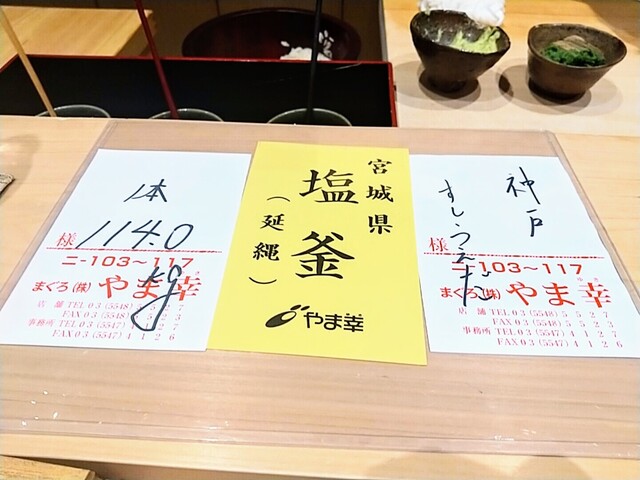 1本
様 114.0
kg
ニ-103~117
まぐろ(株)やま幸
店 舗 TEL 03 (5548) 5 5 2 7
FAX 03 (5548) 5 5 2 3
事務所 TEL 03 (5547) 4 1 2 7
FAX 03 (5547) 4 1 2 6
宮城県
塩釜
(延縄)
やま幸
神戸
すし うえだ
様
ニ-103~117
まぐろ(株)やま幸
店 舗 TEL 03 (5548) 5 5 2 7
FAX 03 (5548) 5 5 2 3
事務所 TEL 03 (5547) 4 1 2 7
FAX 03 (5547) 4 1 2 6